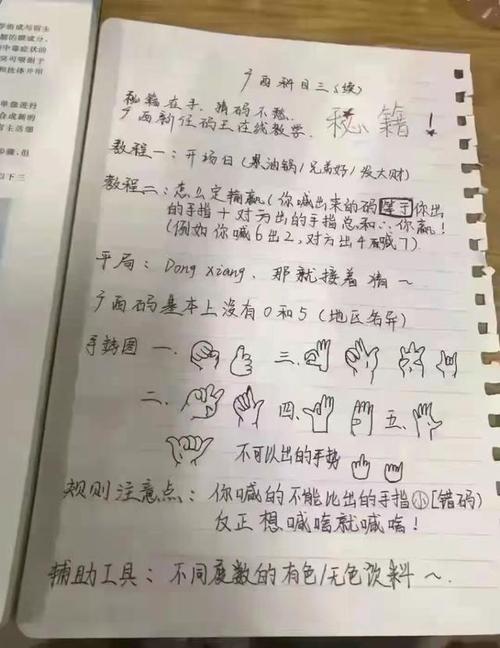 广西科目三(续)
秘籍在手,猜码不愁
秘籍!
广西新任码王在线教学.
教程一:开场白(滚油锅/兄弟好/发大财)
教程二:怎么定输赢(你喊出来的码等于你出
的手指+对方出的手指总和∴你赢!
(例如你喊6出2,对方出4喊7)
平局:Dong xiang、那就接着猜~
广西码基本上没有0和5(地区各异)
手势图 一、 三、
二、 四、 五、
不可以出的手势
规则注意点:你喊的不能比出的手指小[错码)
反正想喊啥就喊啥!
辅助工具:不同度数的有色/无色饮料~.
学术成与宿主
中毒症状的
和抗体并用
单盘进行
合成新的
以下三